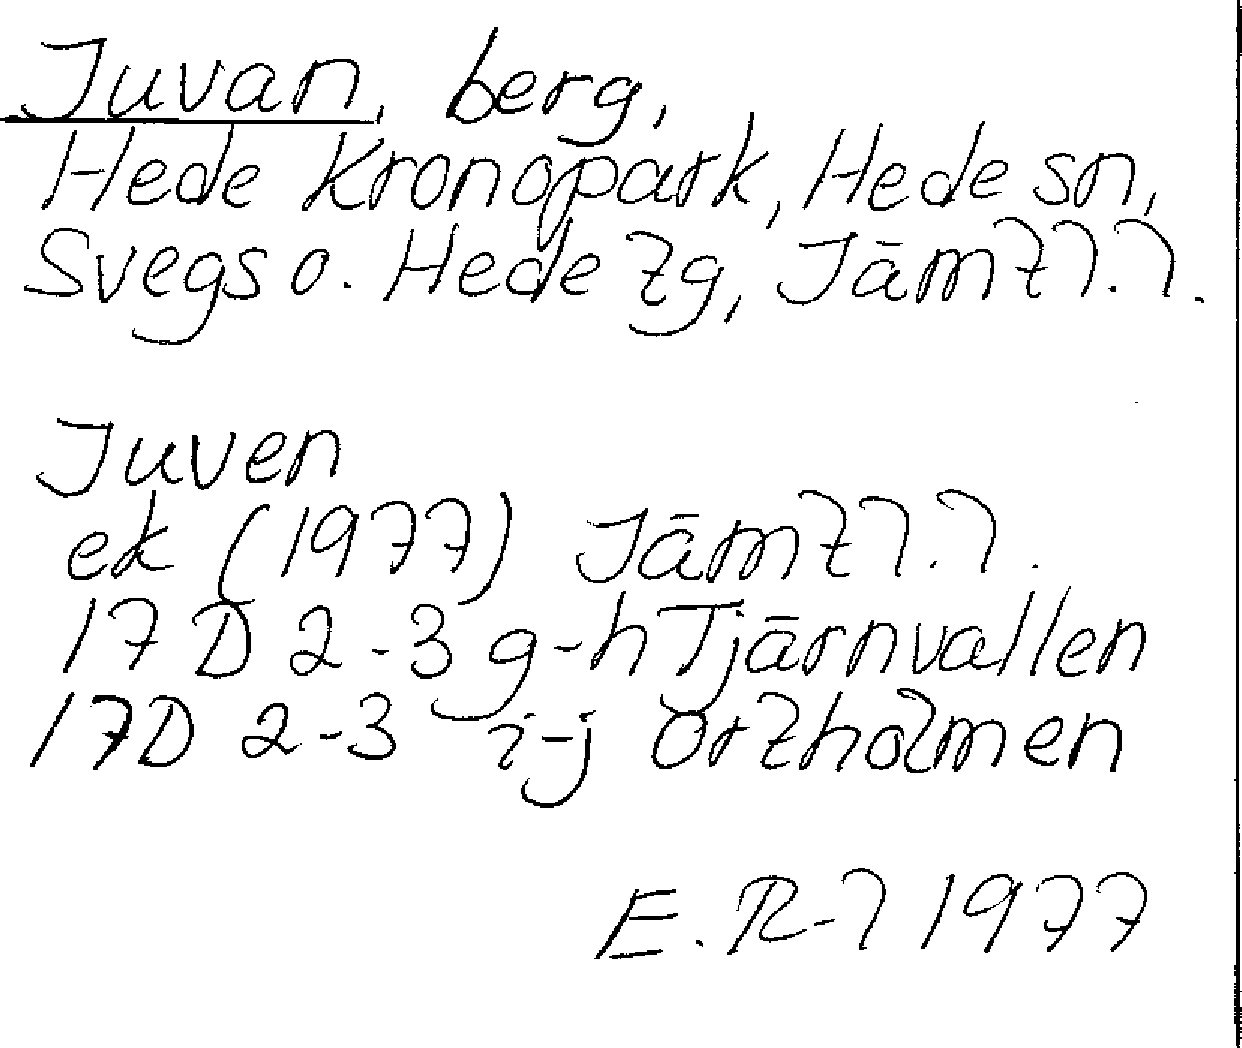 Juvan, berg,
Hede Kronopark, Hede sn,
Svegs o. Hede tg, Jämtl.l.
Juven
ek (1977) Jämtl.l.
17 D 2-3 g-h Tjärnvallen
17D 2-3 i-j Ortholmen
E. R-l 1977